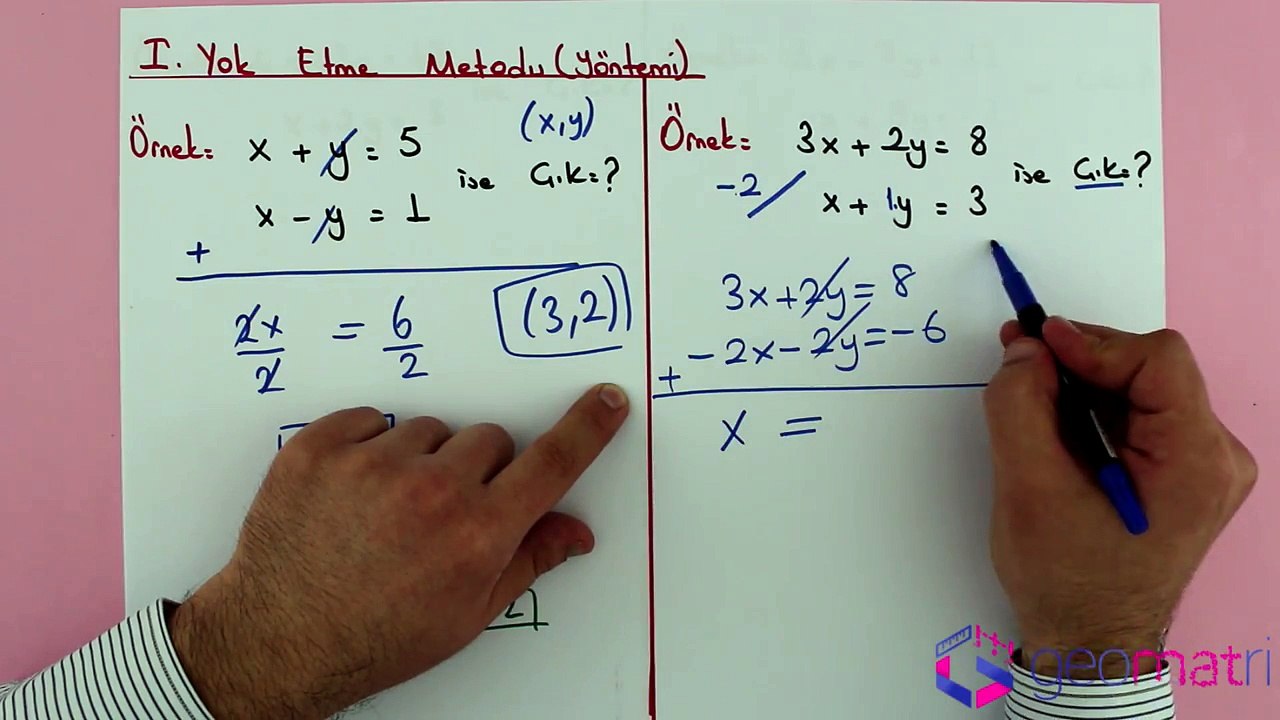 I. Yok Etme Metodu (Yöntemi)
Örnek: x + y = 5
(x,y)
ise Ç.K=?
x - y = 1
+
2x/2 = 6/2
(3,2)
Örnek: 3x + 2y = 8
ise Ç.K=?
-2/ x + 1.y = 3
3x+2y= 8
-2x-2y=-6
+
x =
geomatri